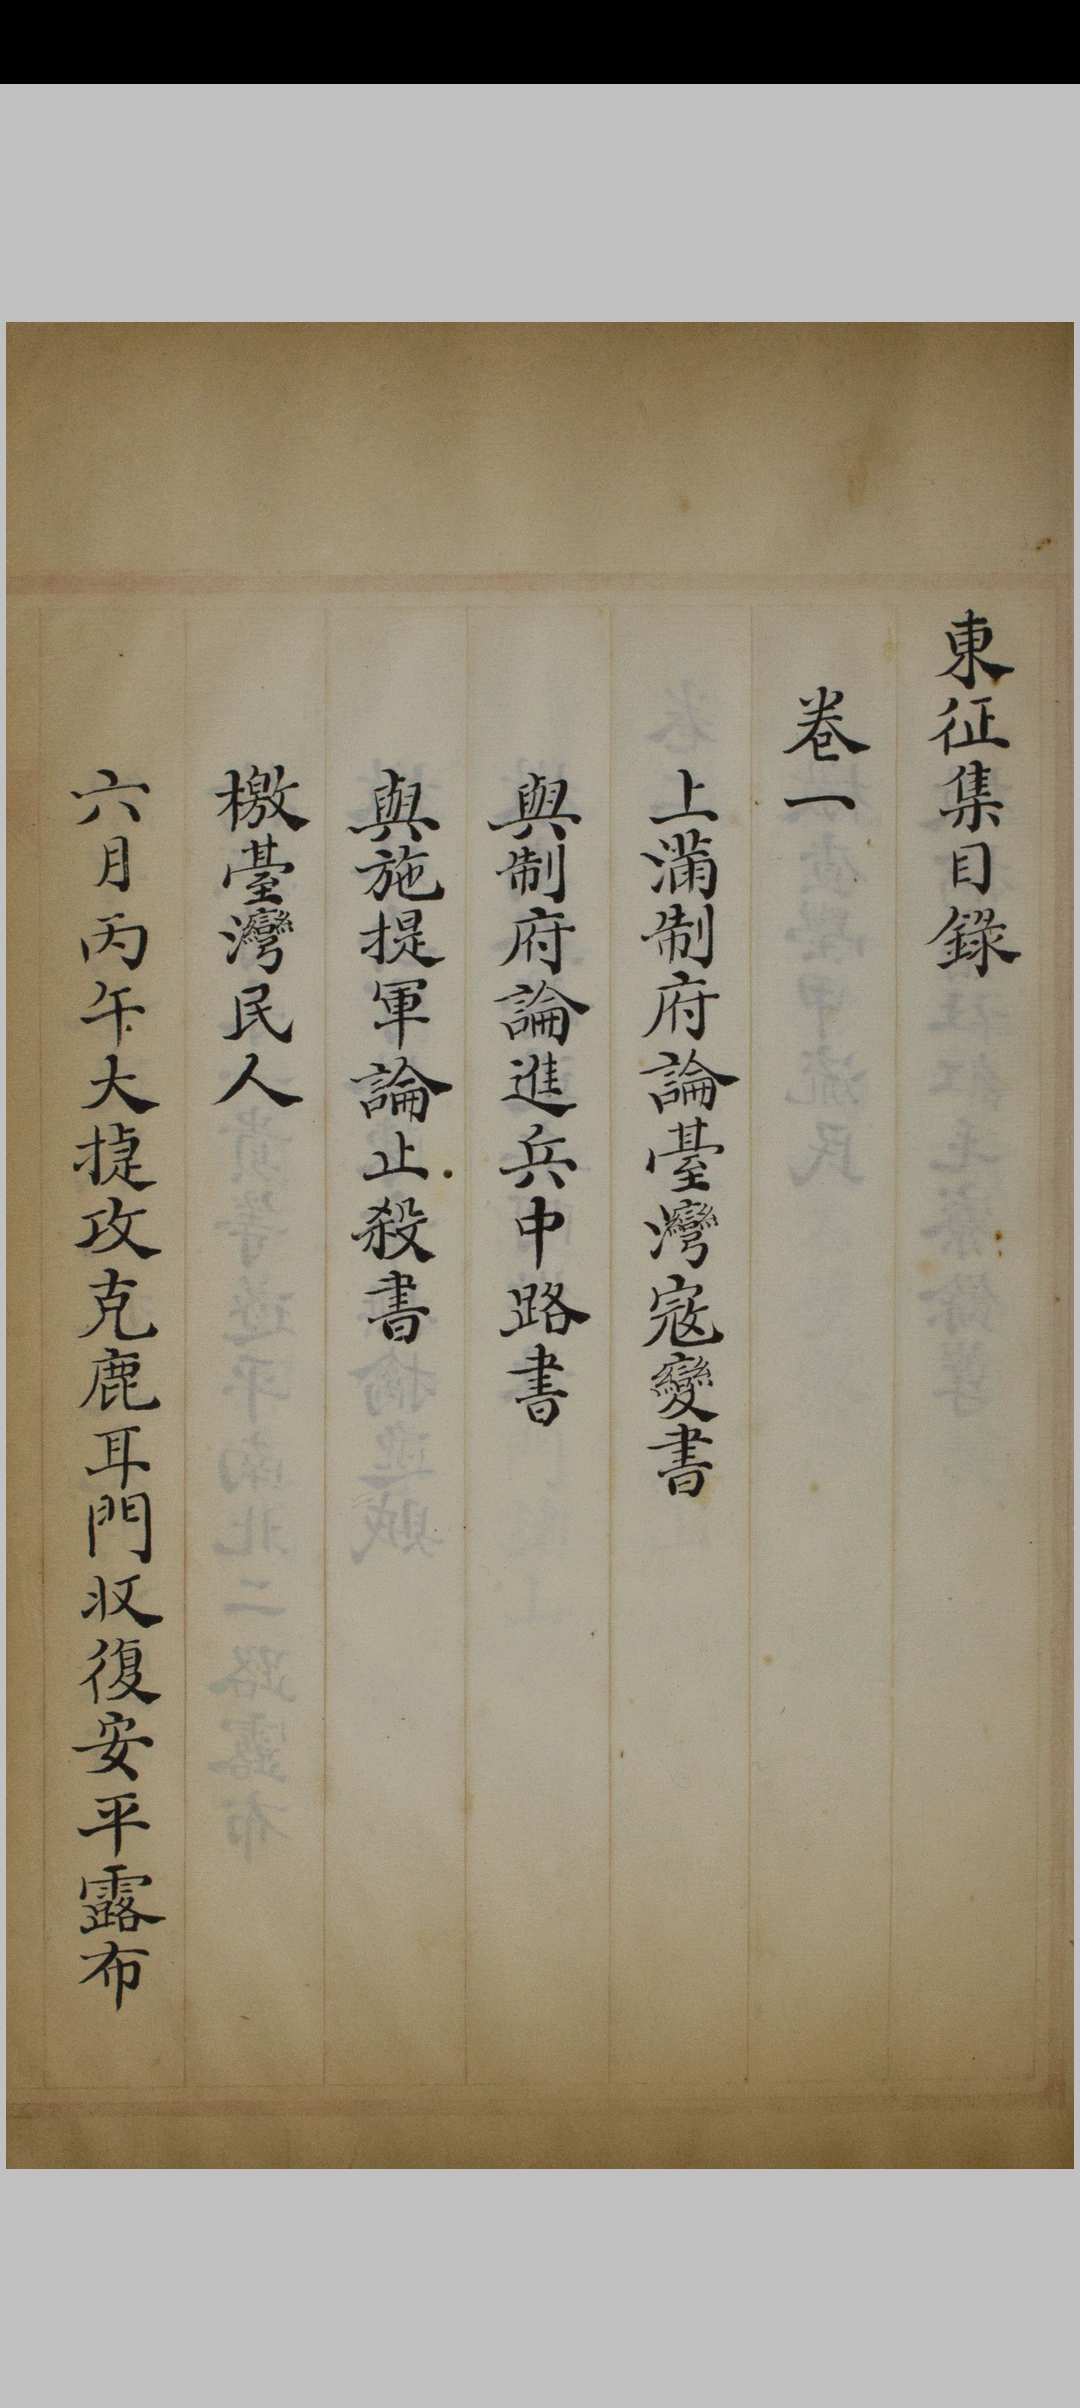 東征集目錄
卷一
上滿制府論臺灣寇變書
與制府論進兵中路書
與施提軍論止殺書
檄臺灣民人
六月丙午大捷攻克鹿耳門収復安平露布